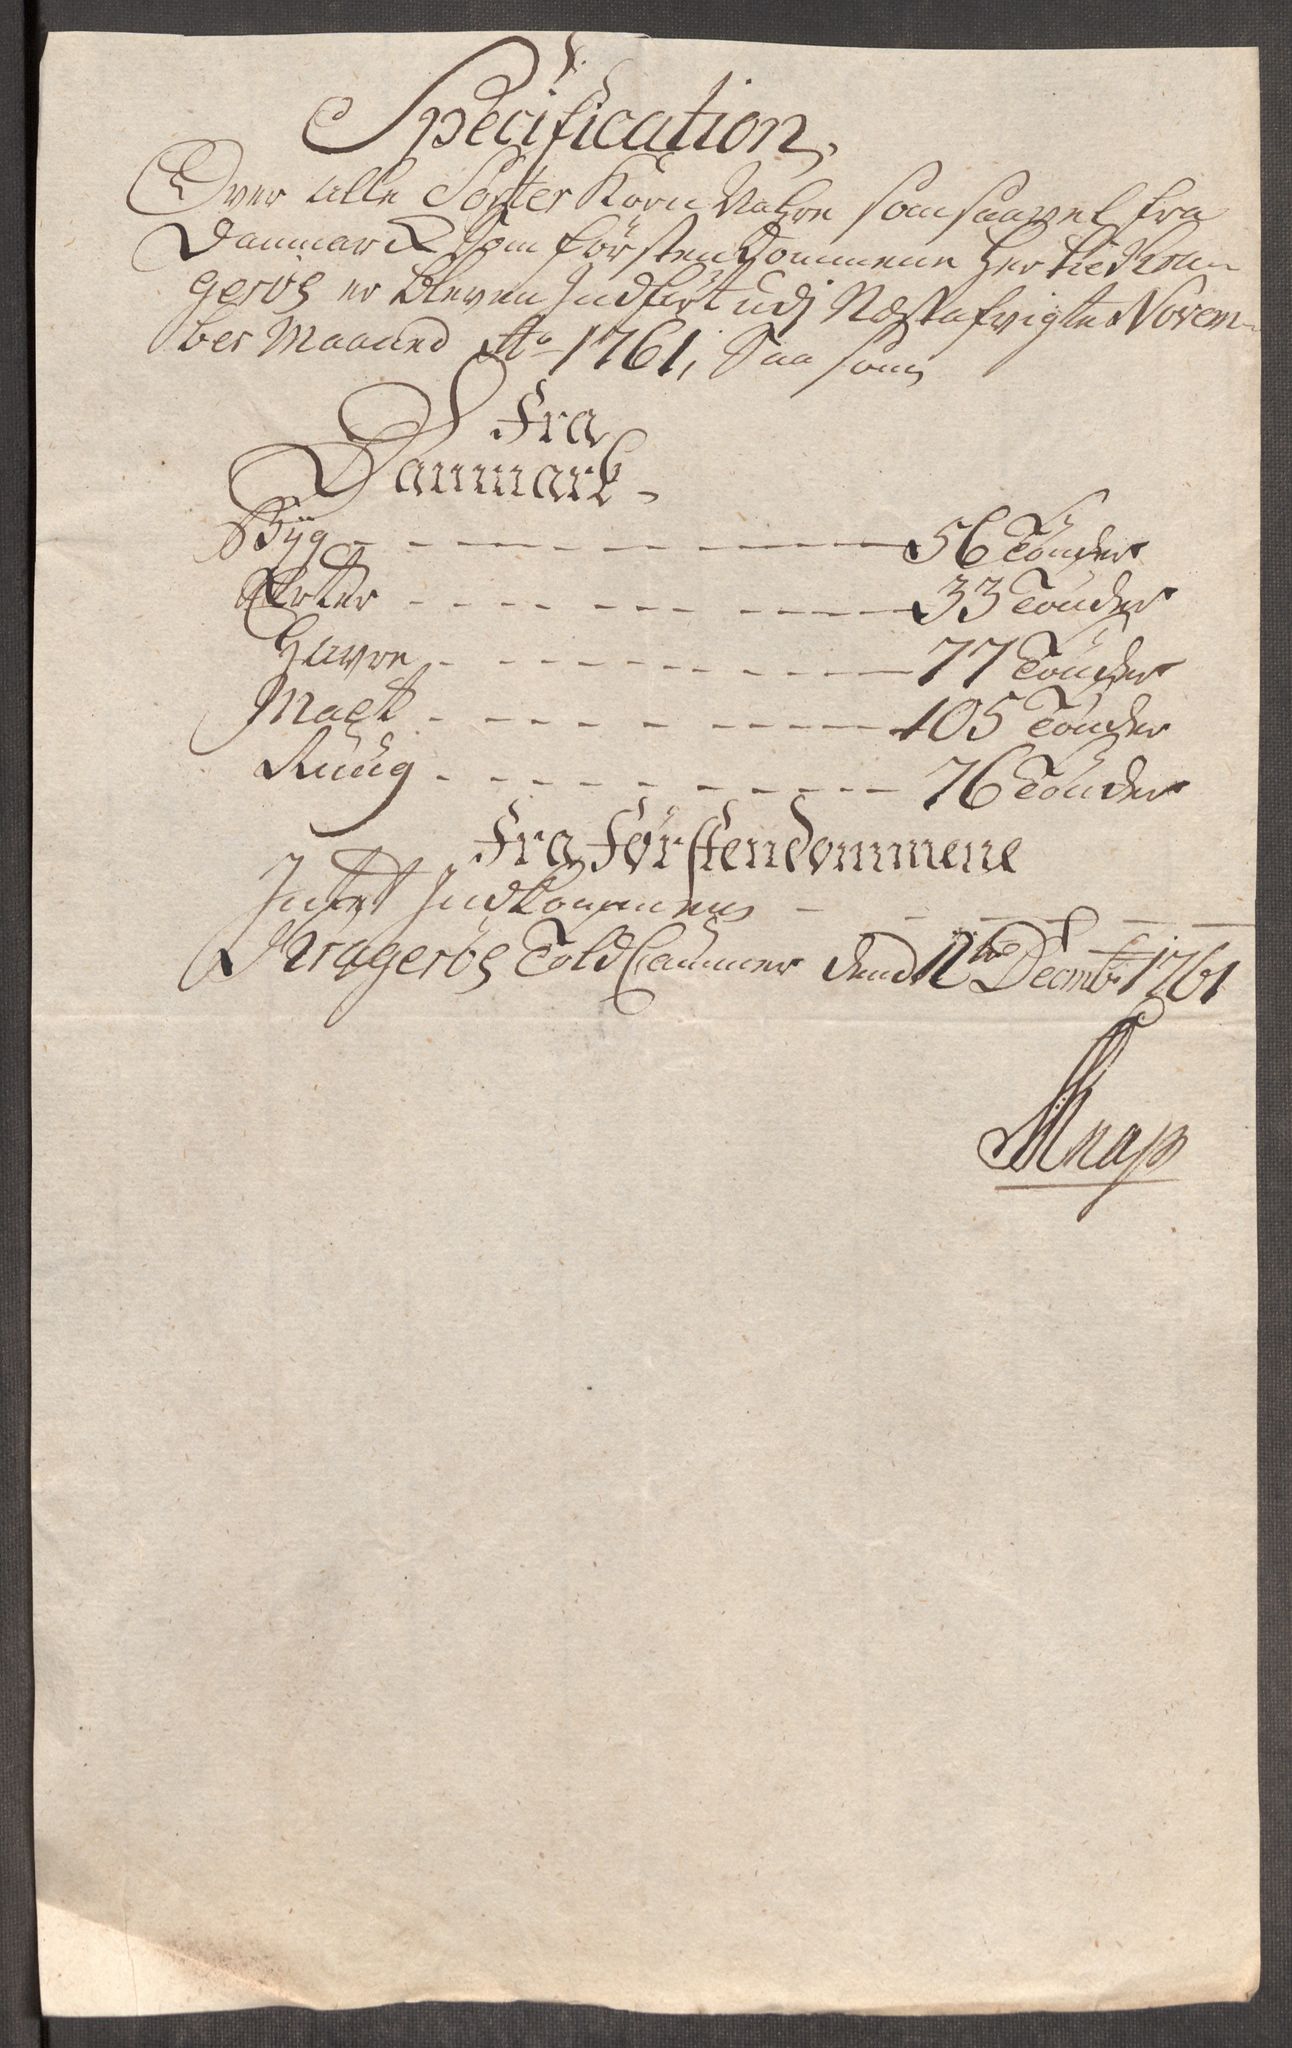 Specification,
Over alle Sorter Korn Vahre som saavel fra
Danmark som Förstendommene her tie Kra-
geröe er bleven Indfört udj Næstafvigte Novem-
ber Maaned Ao 1761, Saa som
Fra
Danmark-
Byg - - - - - - - - - 56 Tönder
Erter - - - - - - - - - 33 Tönder
Havre - - - - - - - - - 77 Tönder
Malt - - - - - - - - - 105 Tönder
Ruug - - - - - - - - - 76 Tönder
Fra Førstendommene
Intet Indkommen - - - - - -
Krageröe Told Cammer dend 12te Decmbr 1761
Knap